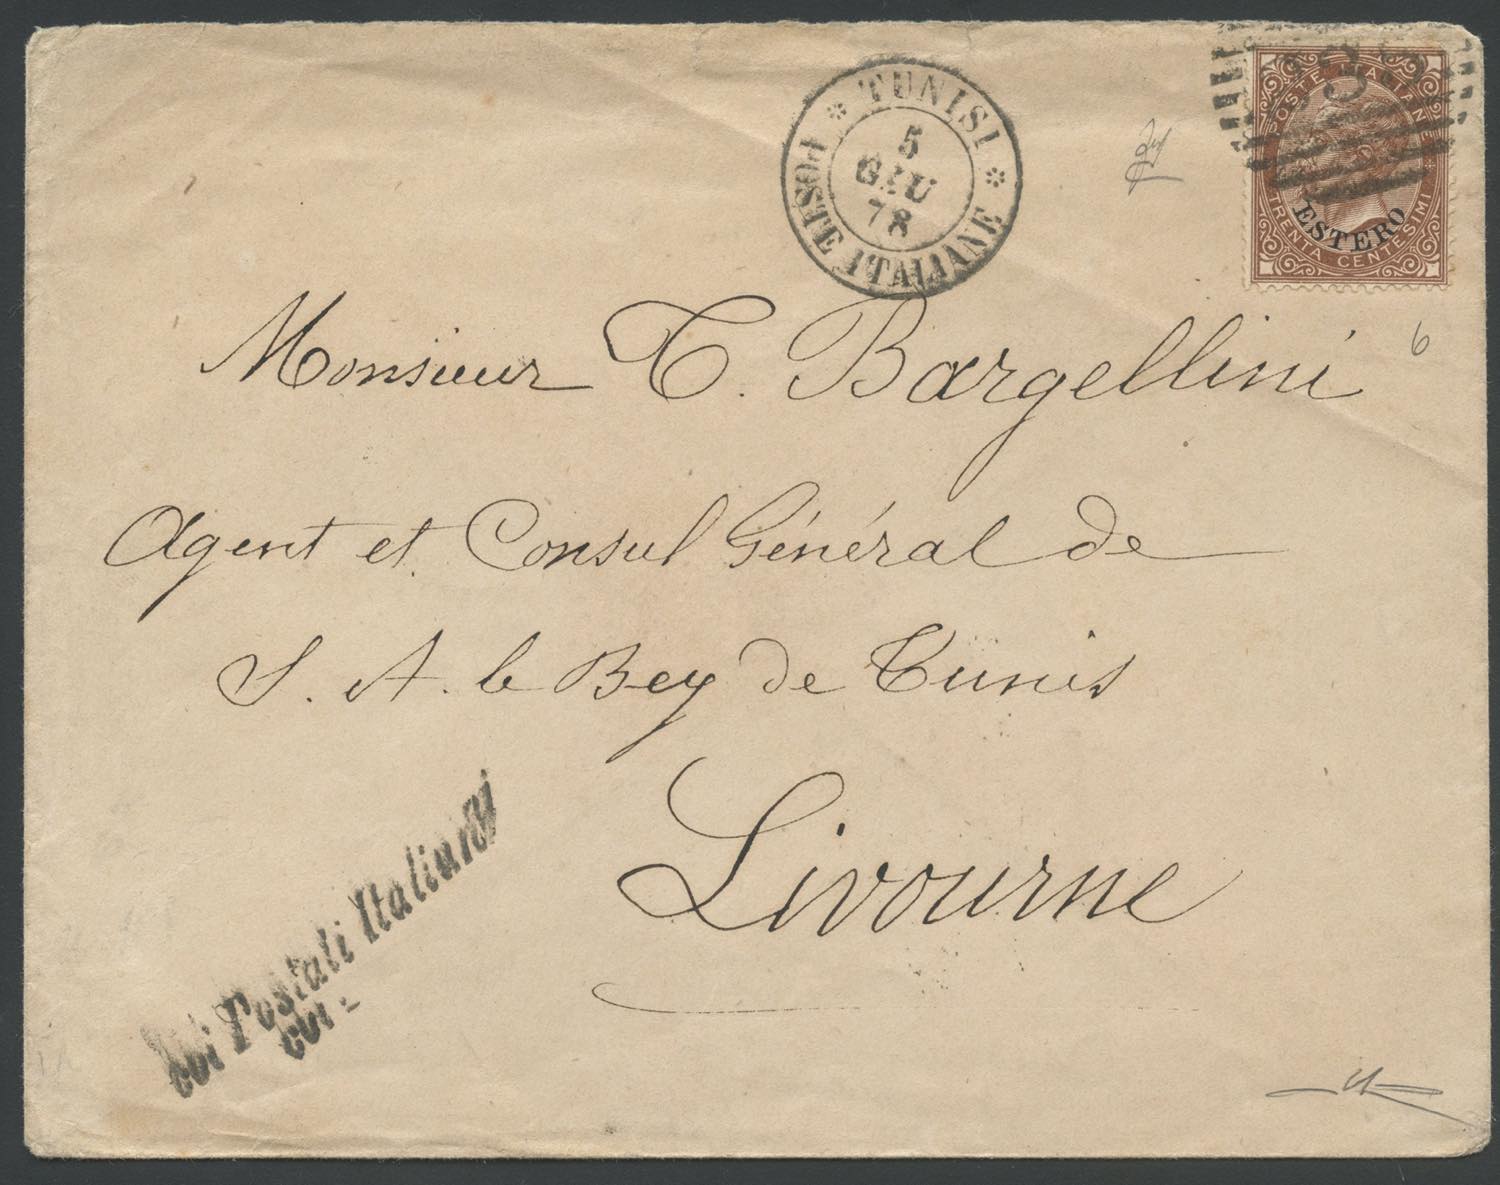 * TUNISI *
5
GIU
78
POSTE ITALIANE
POSTE ITALIANE
ESTERO
TRENTA CENTESIMI
6
Monsieur T. Bargellini
Agent et Consul Général de
S. A. le Bey de Tunis
Livourne
Postali Italiani
coi